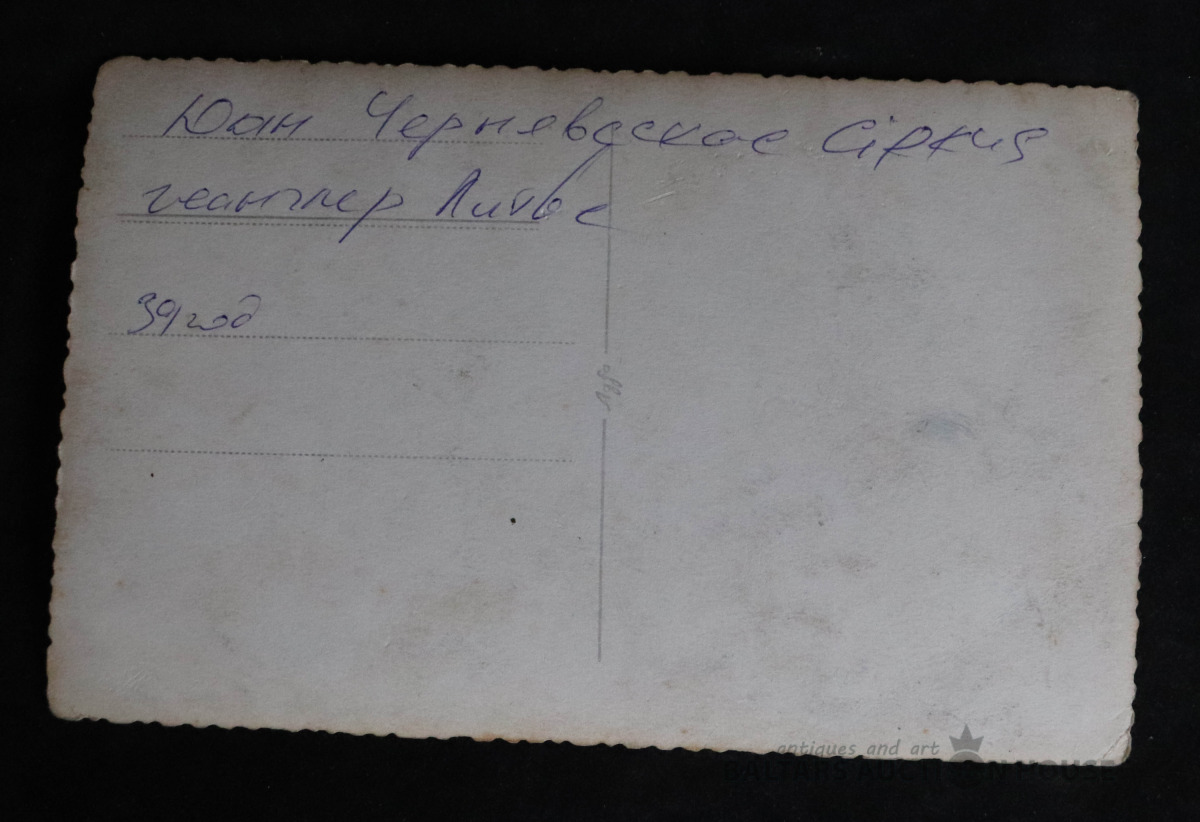 Юан Чернявское Сiркия
геанглер Литве
39 год
antiques and art
BALTARS AUCTION HOUSE